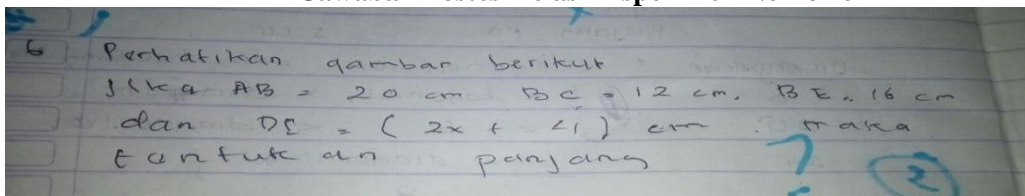 6 Perhatikan gambar berikut
Jika AB = 20 cm BC = 12 cm, BE = 16 cm
dan DE = ( 2x + 4 ) cm maka
tentukan panjang ?
2